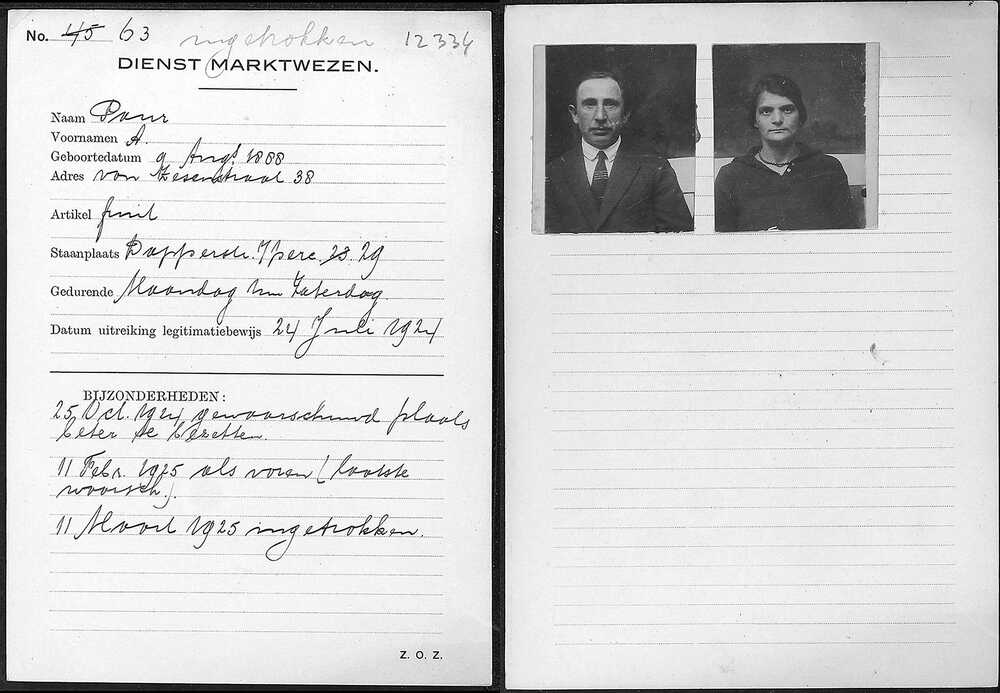 No. 45 63 ingetrokken 12334
DIENST MARKTWEZEN.
Naam Pour
Voornamen A.
Geboortedatum 9 Augs. 1888
Adres von Zesenstraat 38
Artikel fruit
Staanplaats Dapperstr. 7 perc. 28.29
Gedurende Maandag t/m Zaterdag.
Datum uitreiking legitimatiebewijs 24 Juli 1924
BIJZONDERHEDEN:
25 Oct. 1924 gewaarschuwd plaats
beter te bezetten.
11 Febr. 1925 als voren (laatste
waarsch.).
11 Maart 1925 ingetrokken.
Z. O. Z.